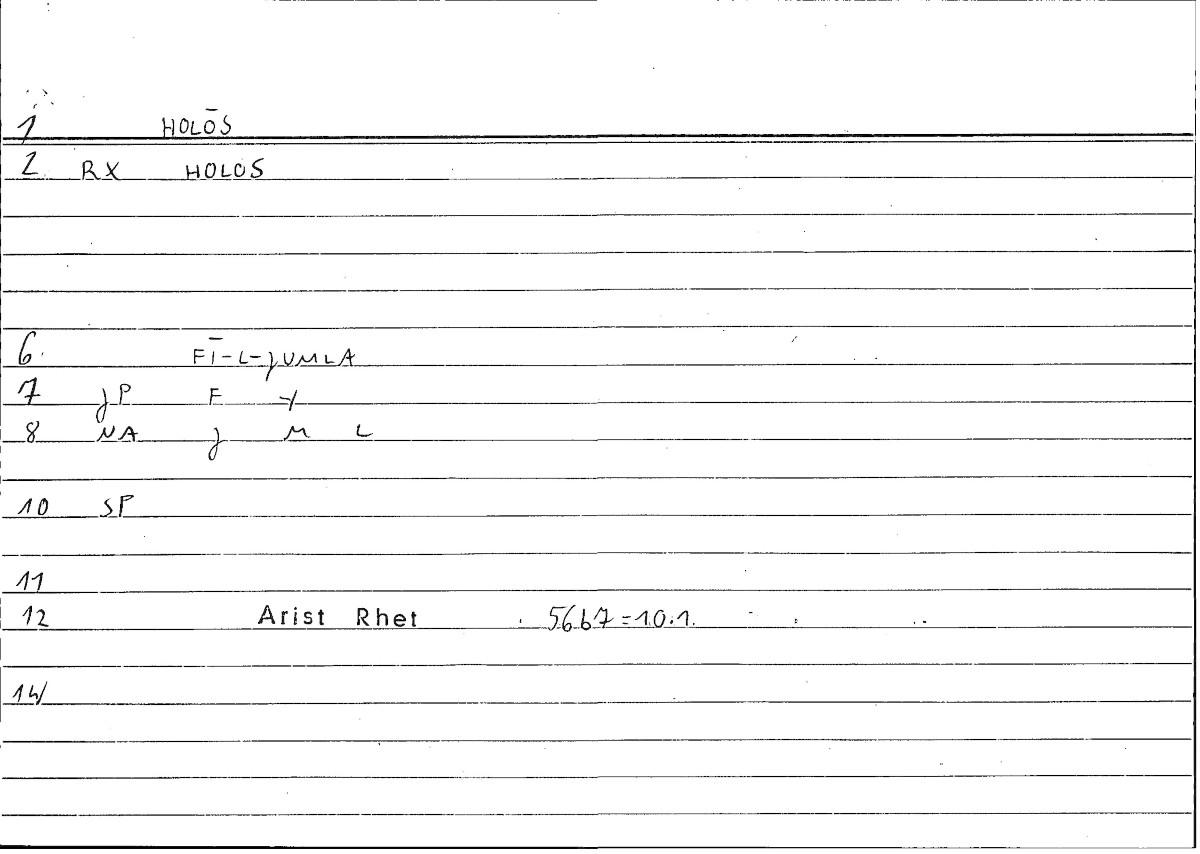 1 HOLŌS
2. RX HOLOS
6. FĪ-L-JUMLA
7 JP F Y
8 NA J M L
10 SP
11
12 Arist Rhet 56b7=10.1.
14